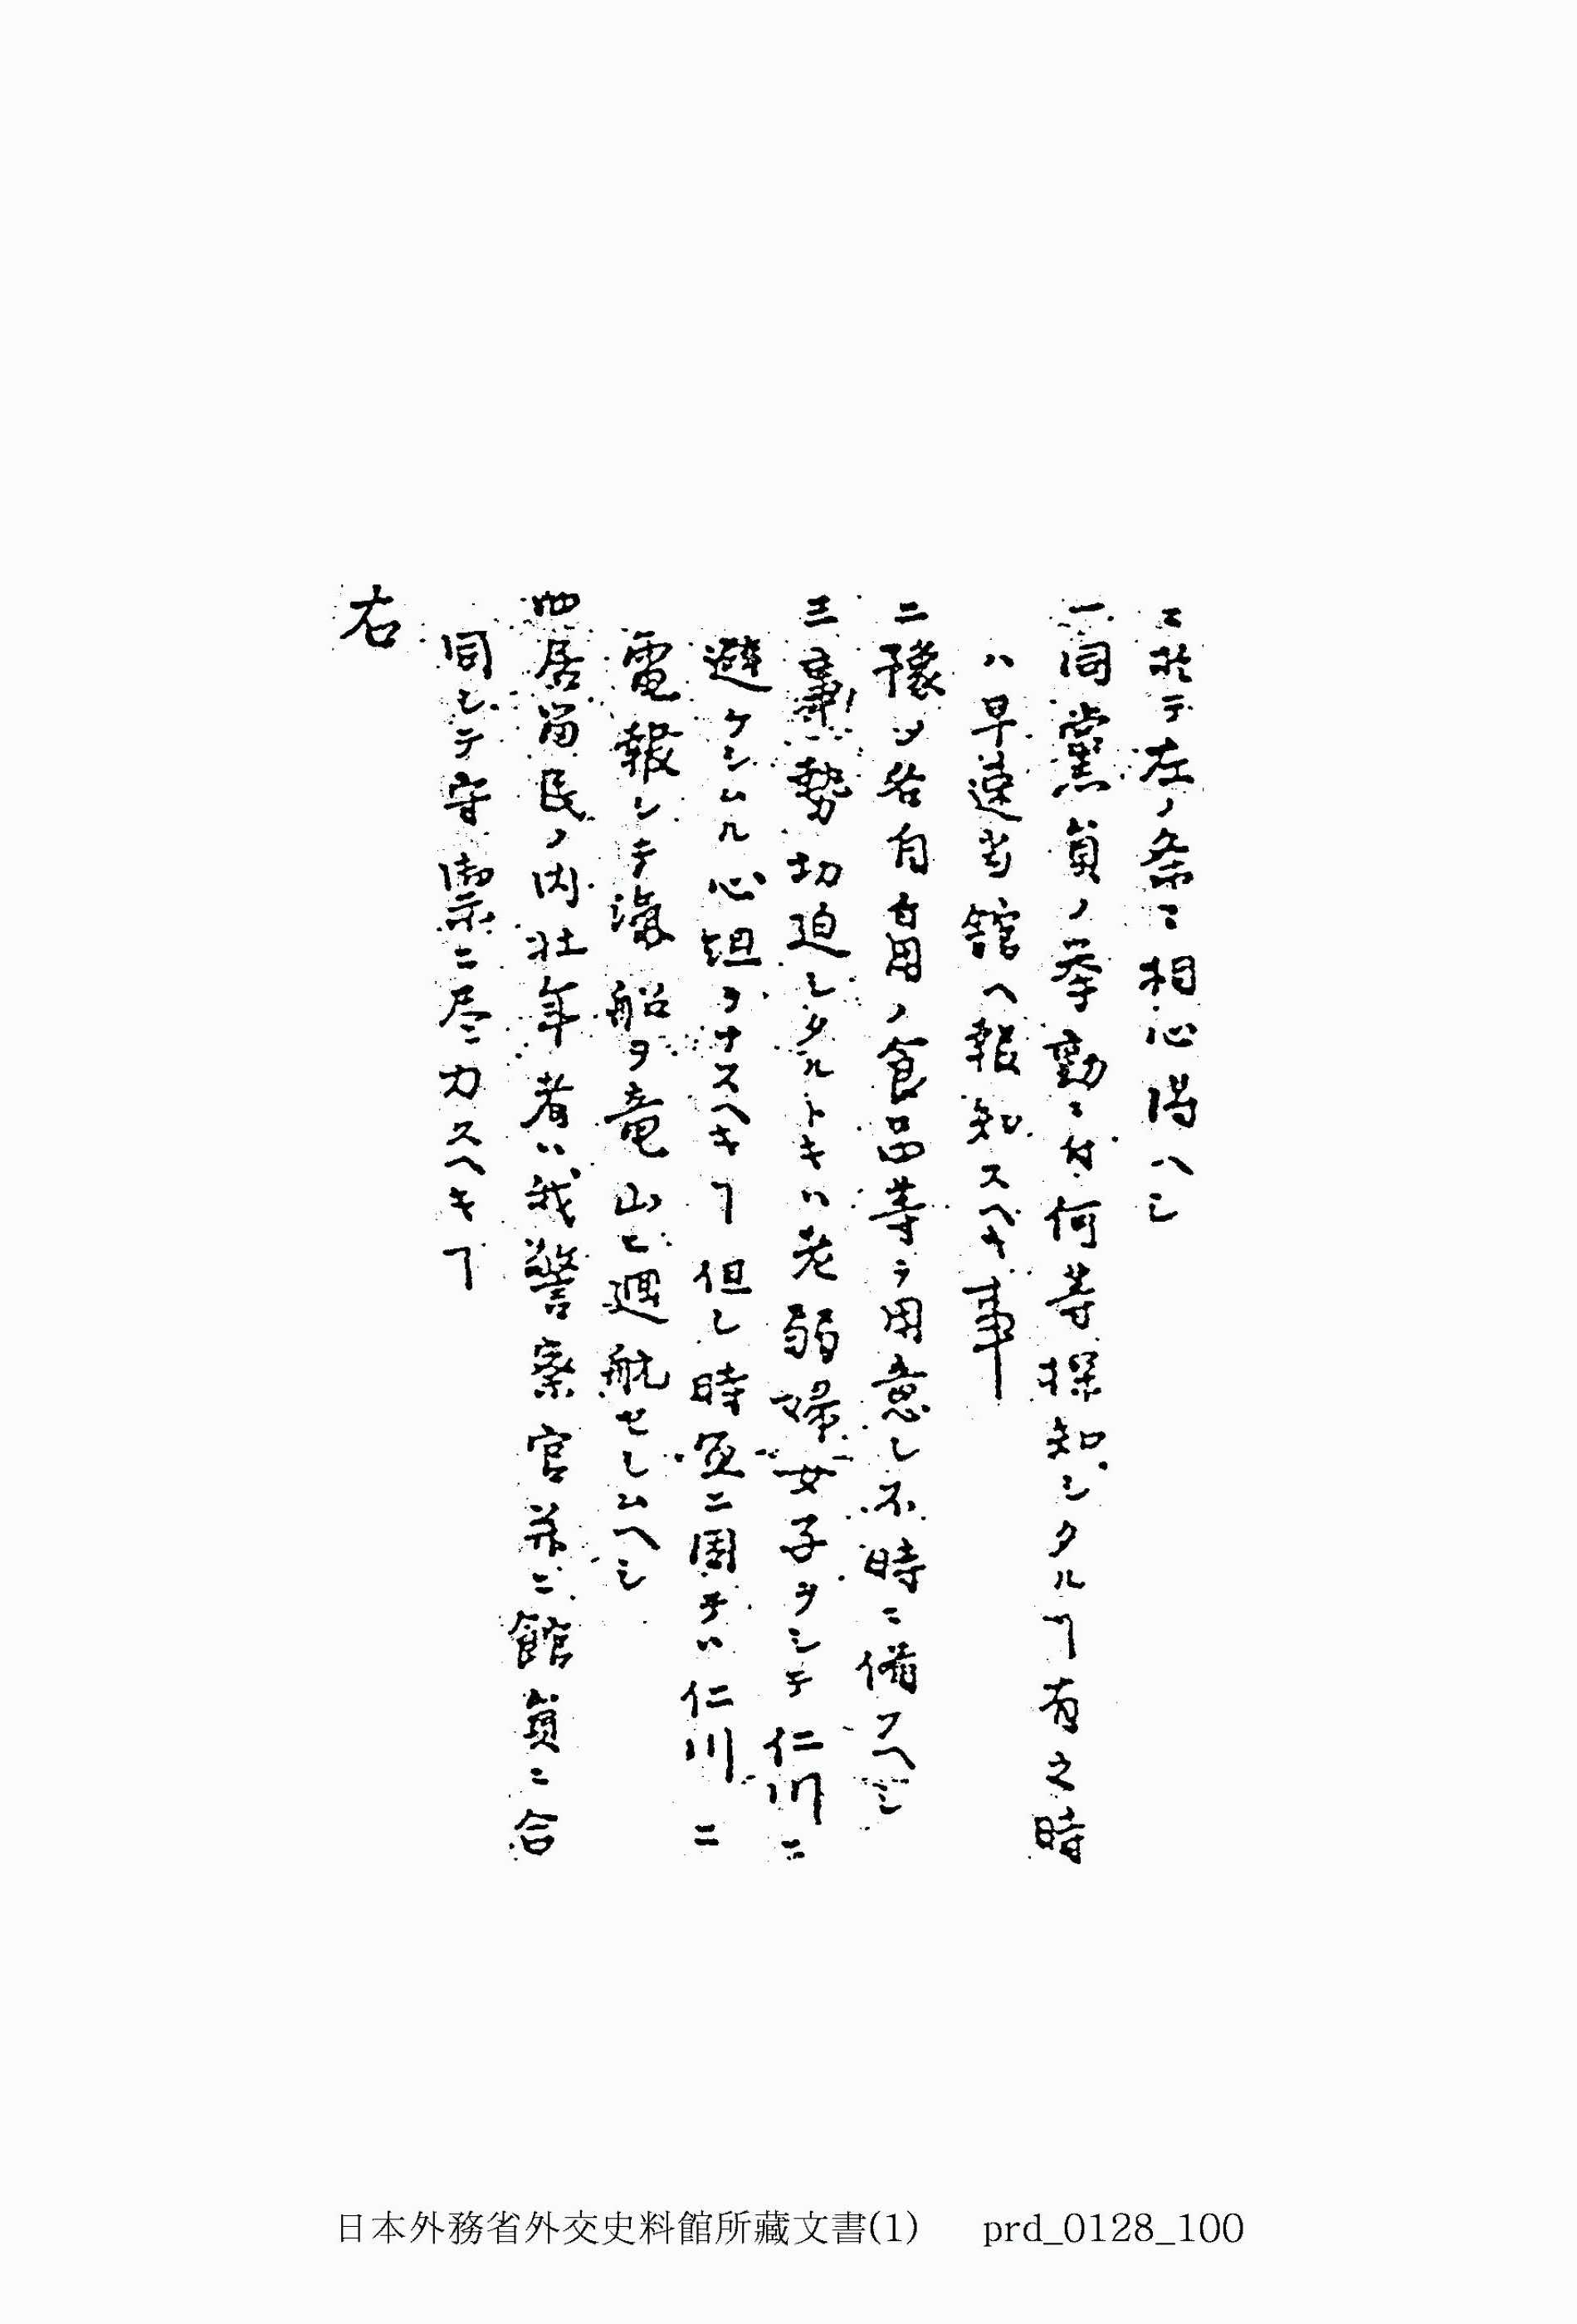 ニ於テ左ノ条々相心得ヘシ
一同黨員ノ挙動ニ付何等探知シタルヿ有之時
ハ早速当舘ヘ報知スヘキ事
二豫メ各自自用ノ食品等ヲ用意シ不時ニ備フヘシ
三事勢切迫シタルトキハ老弱婦女子ヲシテ仁川ニ
避ケシムル心坦ヲナスヘキヿ但シ時宜ニ因テハ仁川ニ
電報シテ海船ヲ竜山ニ廻航セシムヘシ
四居留民ノ内壮年者ハ我警察官并ニ館員ニ合
同シテ守禦ニ尽力スヘキヿ
右
日本外務省外交史料館所藏文書(1) prd_0128_100